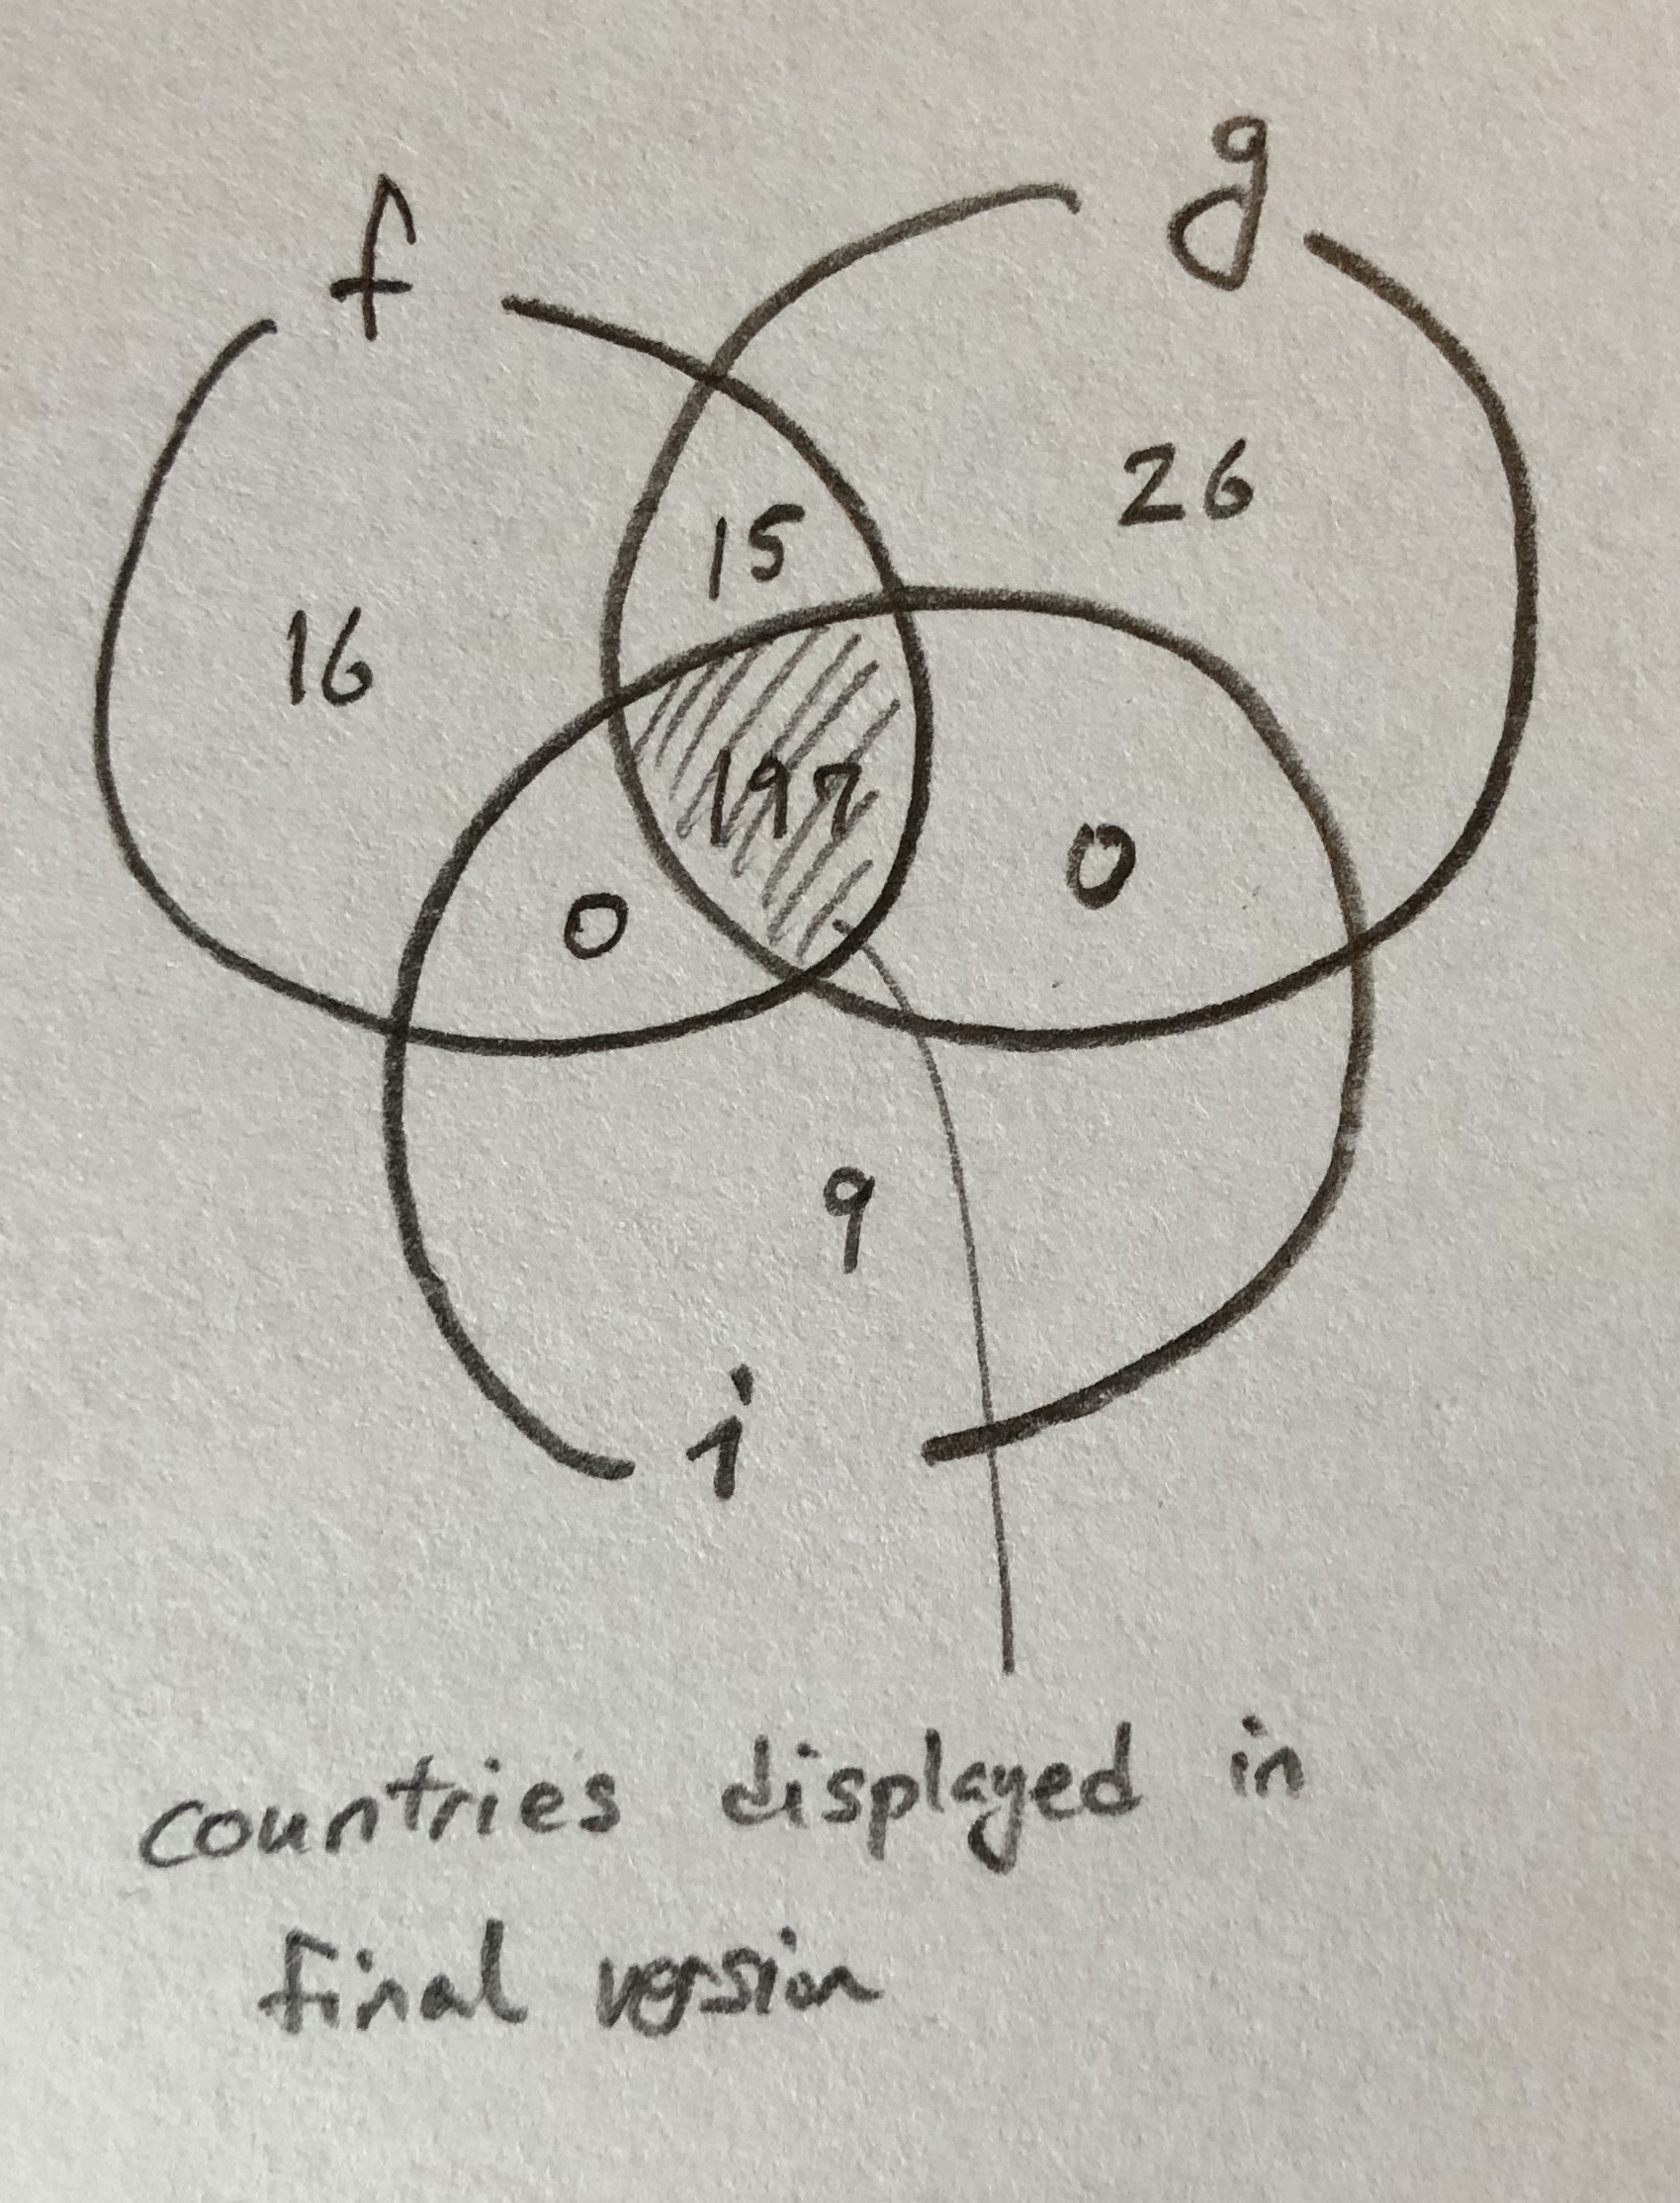 f
g
26
15
16
197
0
0
9
i
countries displayed in
final version